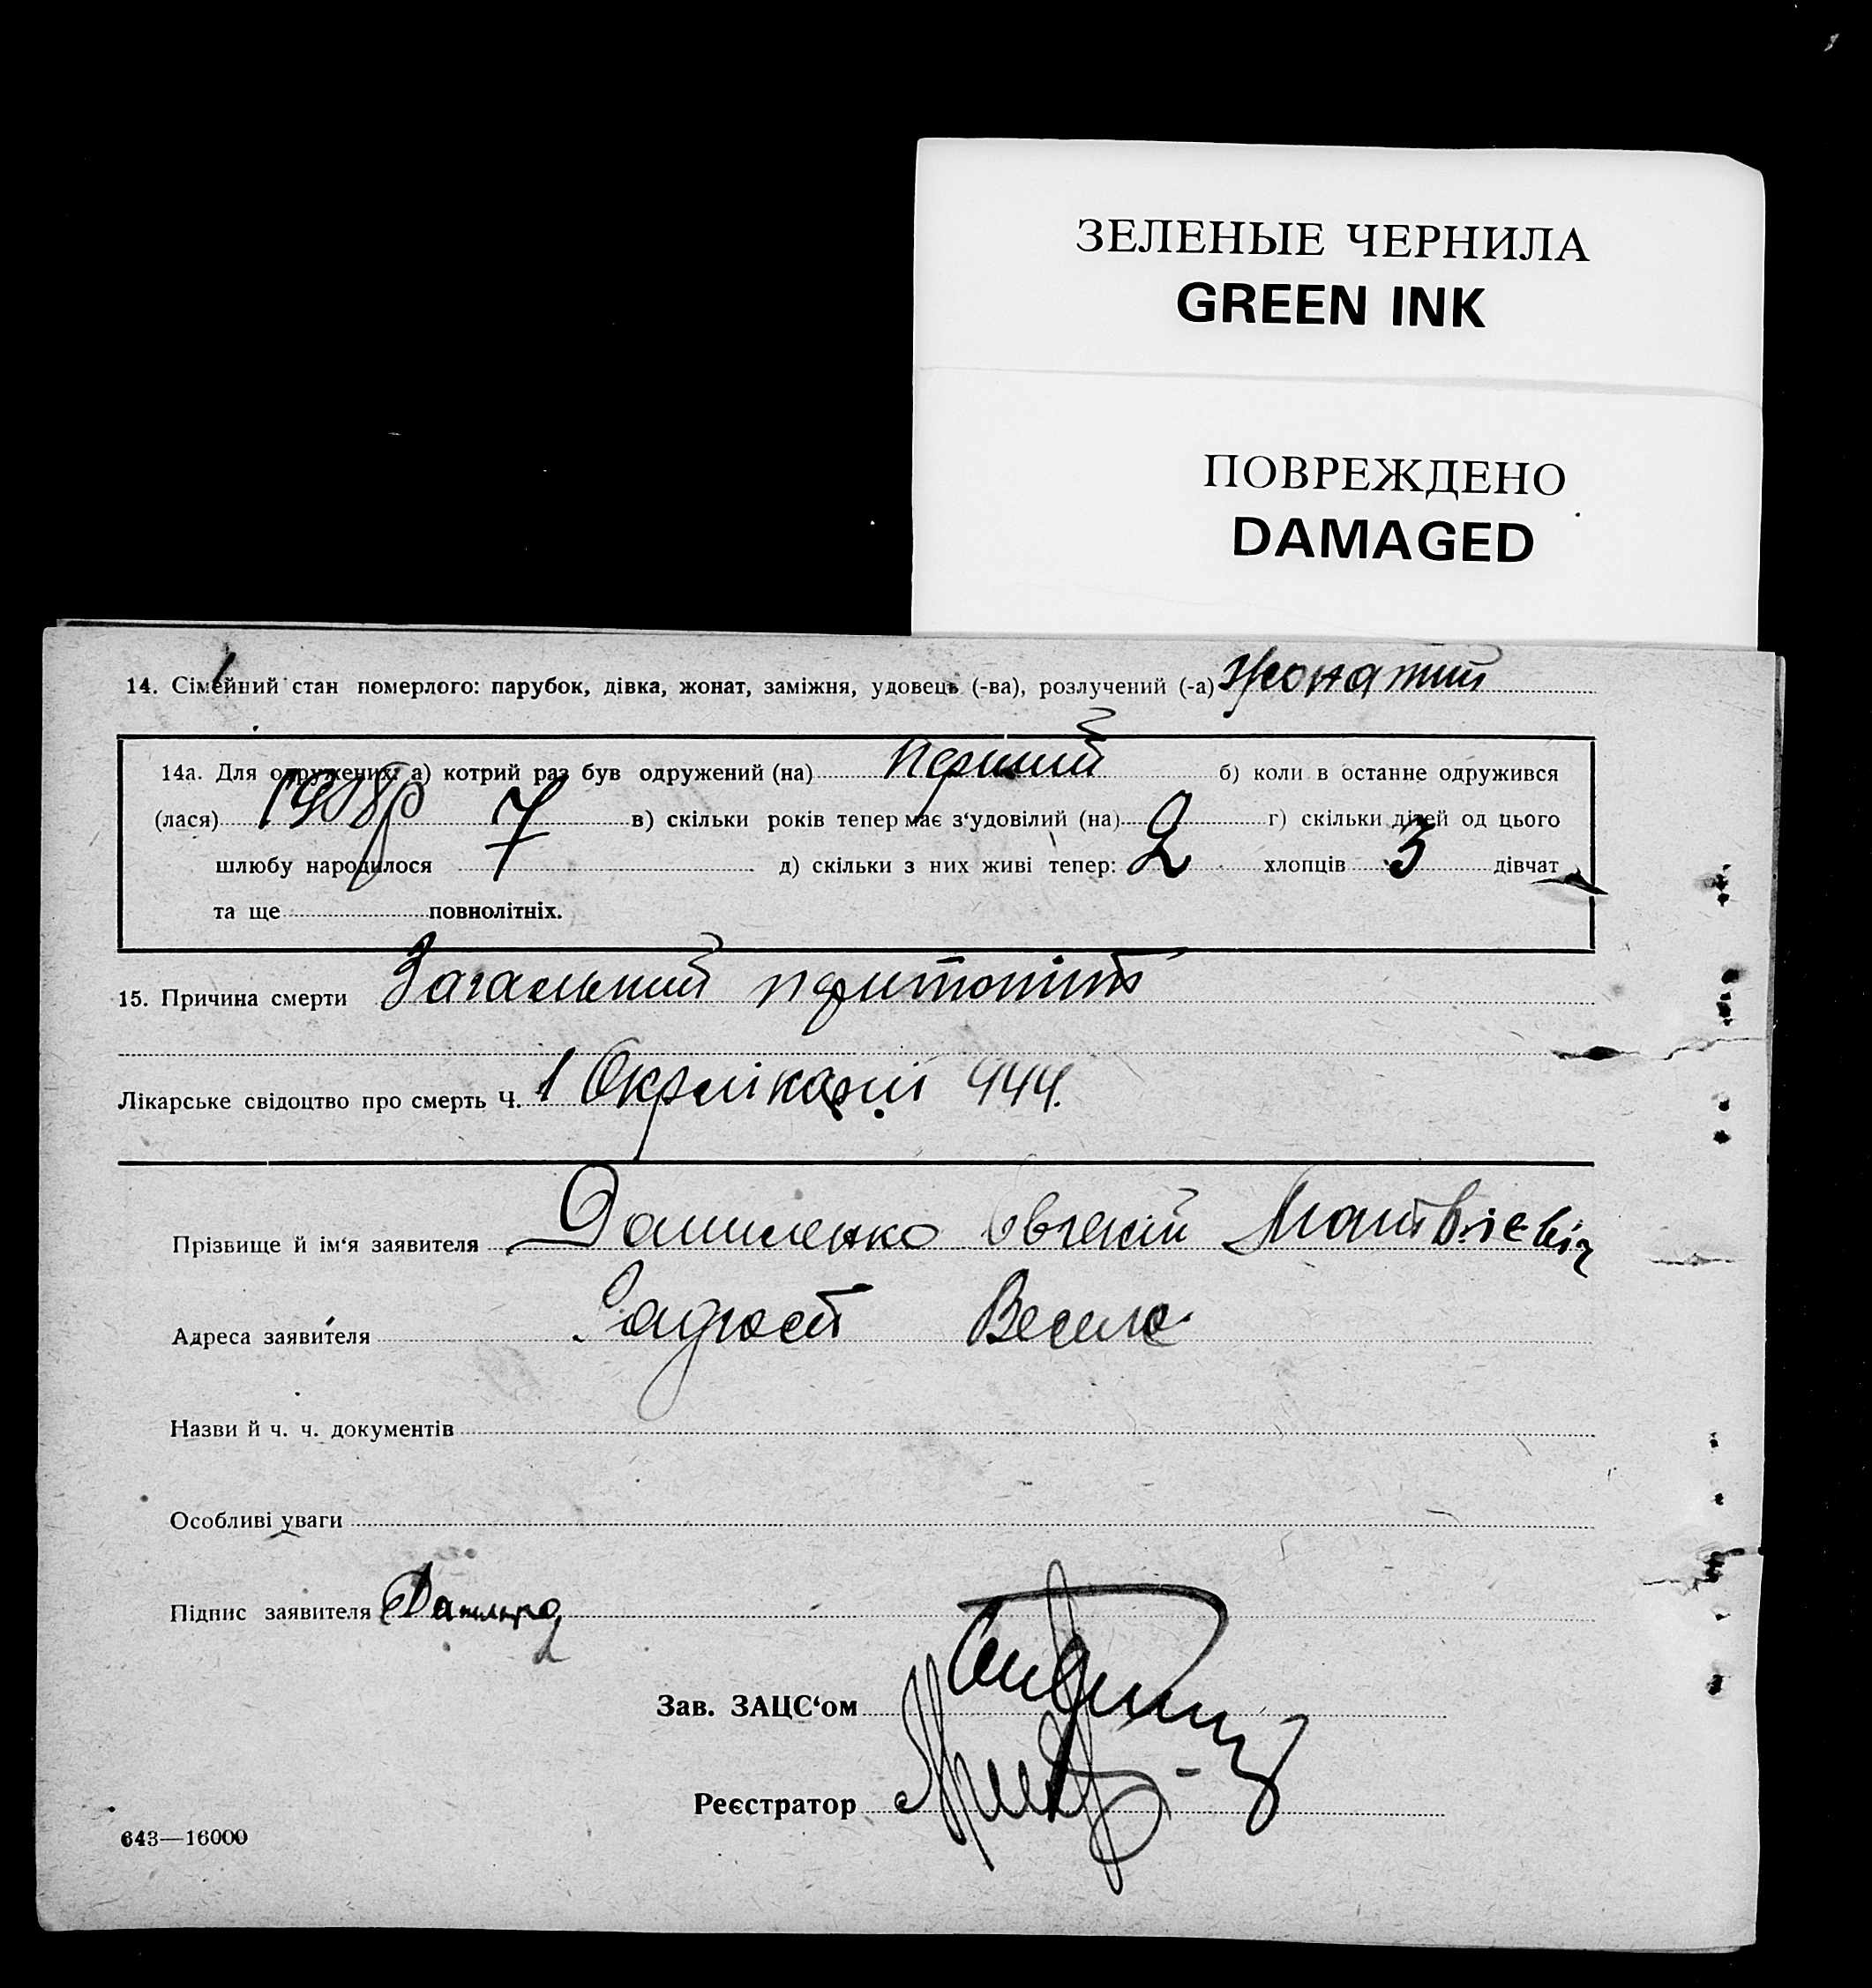 ЗЕЛЕНЫЕ ЧЕРНИЛА
GREEN INK
ПОВРЕЖДЕНО
DAMAGED
14. Сімейний стан померлого: парубок, дівка, жонат, заміжня, удовець (-ва), розлучений (-а) жонатий
14а. Для одружених: а) котрий раз був одружений (на) перший б) коли в останне одружився
(лася) 1908р в) скільки років тепер має з‘удовілий (на) г) скільки дітей од цього
шлюбу народилося 7 д) скільки з них живі тепер: 2 хлопців 3 дівчат
та ще повнолітніх.
15. Причина смерти Загальний перитоніт
Лікарське свідоцтво про смерть Ч. 1 Окрлікарні 444.
Прізвище й ім‘я заявителя Даниленко Євгеній Матвієвіч
Адреса заявителя Радгосп Веселе
Назви й ч. ч. документів
Особливі уваги
Підпис заявителя
Зав. ЗАЦС‘ом
Реєстратор
643—16000